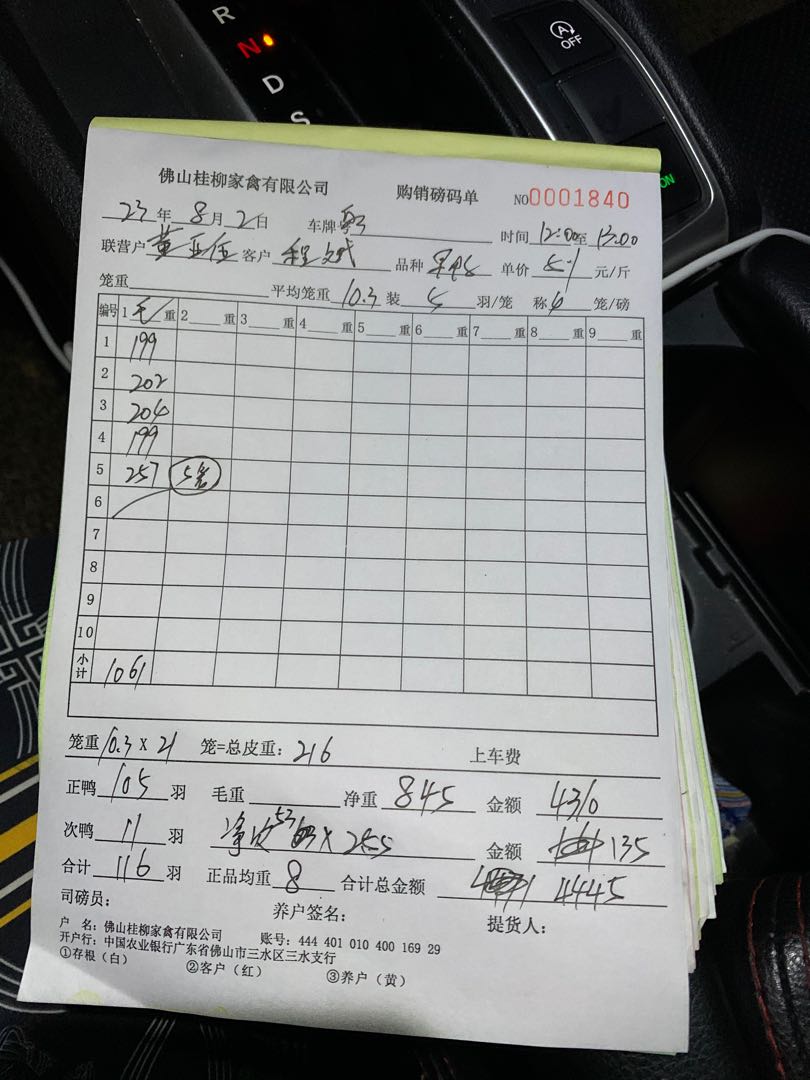 R
N
D
S
A
OFF
ON
佛山桂柳家禽有限公司 购销磅码单 NO0001840
23年8月2日 车牌 时间12:00至13:00
联营户黄亚任 客户程 品种 单价5.1元/斤
笼重 平均笼重10.3装5羽/笼 称4笼/磅
编号 1毛重 2重 3重 4重 5重 6重 7重 8重 9重
1 199
2 202
3 204
4 199
5 257 5笼
6
7
8
9
10
小计 1061
笼重10.3X21 笼=总皮重:216 上车费
正鸭105羽 毛重 净重845 金额4310
次鸭11羽 净次53 x 255 金额135
合计116羽 正品均重8 合计总金额4445
司磅员: 养户签名: 提货人:
户 名:佛山桂柳家禽有限公司 账号:444 401 010 400 169 29
开户行:中国农业银行广东省佛山市三水区三水支行
①存根(白) ②客户(红) ③养户(黄)